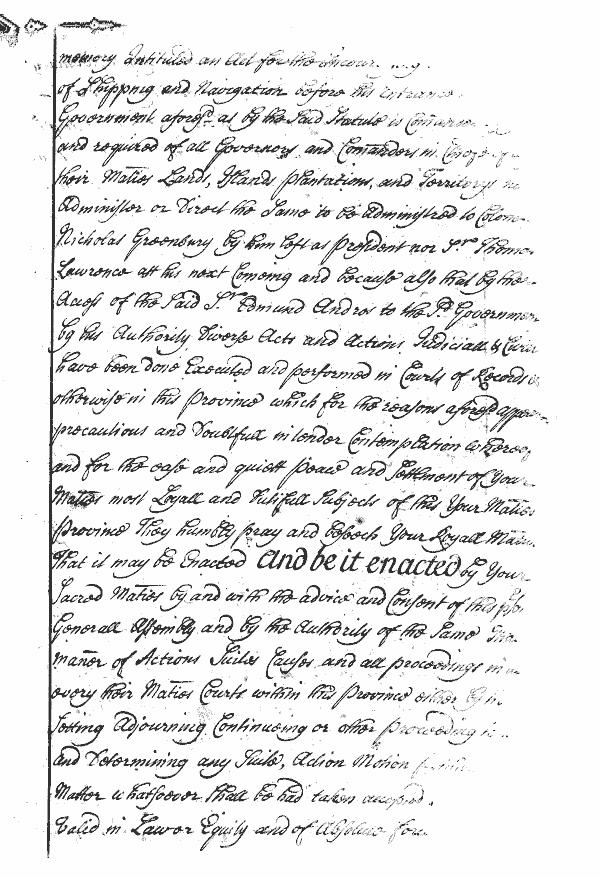 memory Intituled an Act for the
of Shipping and Navigation before his entrance
Government aforesd. as by the Said Statute is
and required of all Governors and Comanders in Cheife
their Maties Lands, Islands Plantations, and Territorys
Administer or Direct the Same to be administred to
Nicholas Greenbury by him left as President nor Sr. Thomas
Lawrence att his next Comeing and because also that by the
Acces of the Said Sr. Edmund Andros to the Sd. Government
by his Authority Diverse Acts and Actions Judiciall &
have been done Executed and performed in Courts of Records
otherwise in this Province which for the reasons aforesd
precautious and Doubtfull in tender Contemplation whereof
and for the ease and quiett peace and Settlement of Your
Maties most Loyall and Dutifull Subjects of this Your Maties
Province They humbly pray and beseech Your Royall
That it may be Enacted And be it enacted by Your
Sacred Maties by and with the advice and Consent of this
Generall Assembly and by the Authority of the Same
maner of Actions Suites Causes and all proceedings in
every their Maties Courts within this Province either by
Setting Adjourning Continueing or other Proceeding
and Determining any Suite, Action Motion
Matter whatsoever Shall be had taken
Valid in Law or Equity and of Absolute